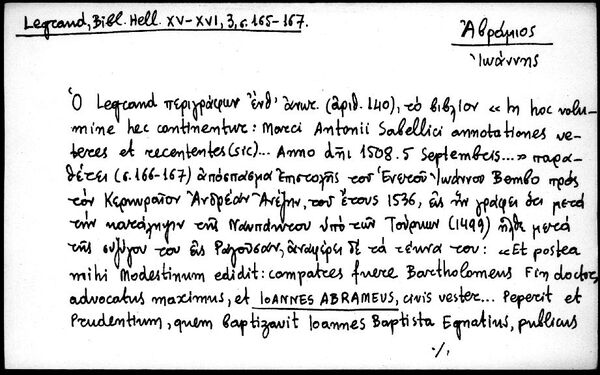 Legrand, Bibl. Hell. XV-XVI, 3, σ. 165-167.
Ἀβράμιος
Ἰωάννης
Ὁ Legrand περιγράφων ἔνθ' ἀνωτ. (ἀριθ. 140), τὸ βιβλίον «In hoc volu-
mine hec continentur: Marci Antonii Sabellici annotationes ve-
teres et recententes (sic)... Anno dñi 1508. 5 Septembris...» παρα-
θέτει (σ. 166-167) ἀπόσπασμα ἐπιστολῆς τοῦ Ἑνετοῦ Ἰωάννου Bembo πρὸς
τὸν Κερκυραῖον Ἀνδρέαν, τοῦ ἔτους 1536, εἰς ἣν γράφει ὅτι μετὰ
τὴν κατάληψιν τῆς Ναυπάκτου ὑπὸ τῶν Τούρκων (1499) ἦλθε μετὰ
τῆς συζύγου του εἰς Ραγοῦσαν, ἀναφέρει δὲ τὰ τέκνα του: «Et postea
mihi Modestinum edidit: compatres fuere Bartholomeus Fin doctor,
advocatus maximus, et IOANNES ABRAMEUS, civis vester... Peperit et
Prudentium, quem baptizavit Ioannes Baptista Egnatius, publicus
./.